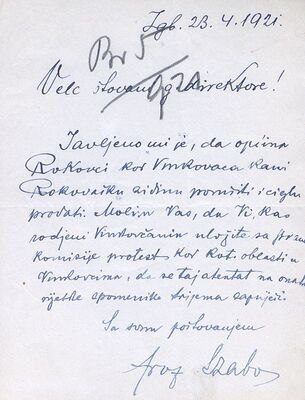 Zgb. 23. 4. 1921.
Br 5
921
Vele štovani g. direktore!
Javljeno mi je, da općina
Rokovci kod Vinkovaca kani
Rokovačku zidinu porušiti i ciglu
prodati. Molim Vas, da Vi, kao
rodjeni Vinkovčanin uložite za
Komisije protest kod Kot. oblasti u
Vinkovcima, da se taj atentat na
rijetke spomenike Srijema zapriječi.
Sa svim poštovanjem
Prof Szabo